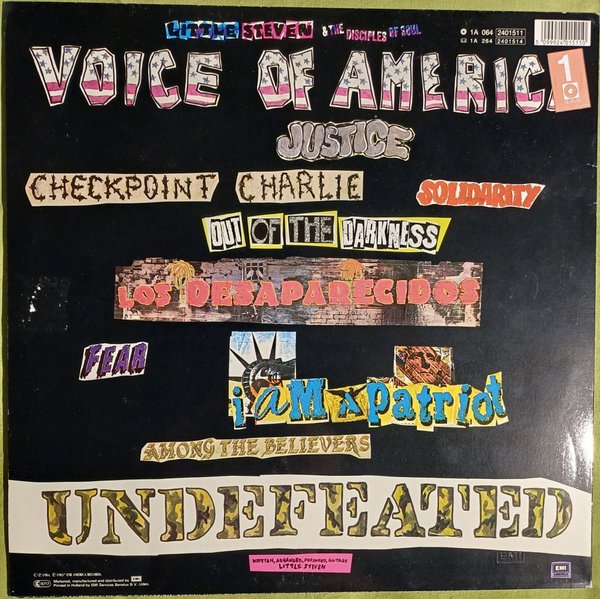 LITTLE STEVEN & THE DISCIPLES OF SOUL
1A 064 2401511
1A 264 2401514
5 099924 015110
VOICE OF AMERICA
1
JUSTICE
CHECKPOINT CHARLIE
SOLIDARITY
OUT OF THE DARKNESS
LOS DESAPARECIDOS
FEAR
i aM A Patriot
AMONG THE BELIEVERS
UNDEFEATED
WRITTEN, ARRANGED, PRODUCED, GUITARS
LITTLE STEVEN
EMI AMERICA RECORDS.
Marketed, manufactured and distributed by EMI
Printed in Holland by EMI Services Benelux B.V., Uden.
EMI